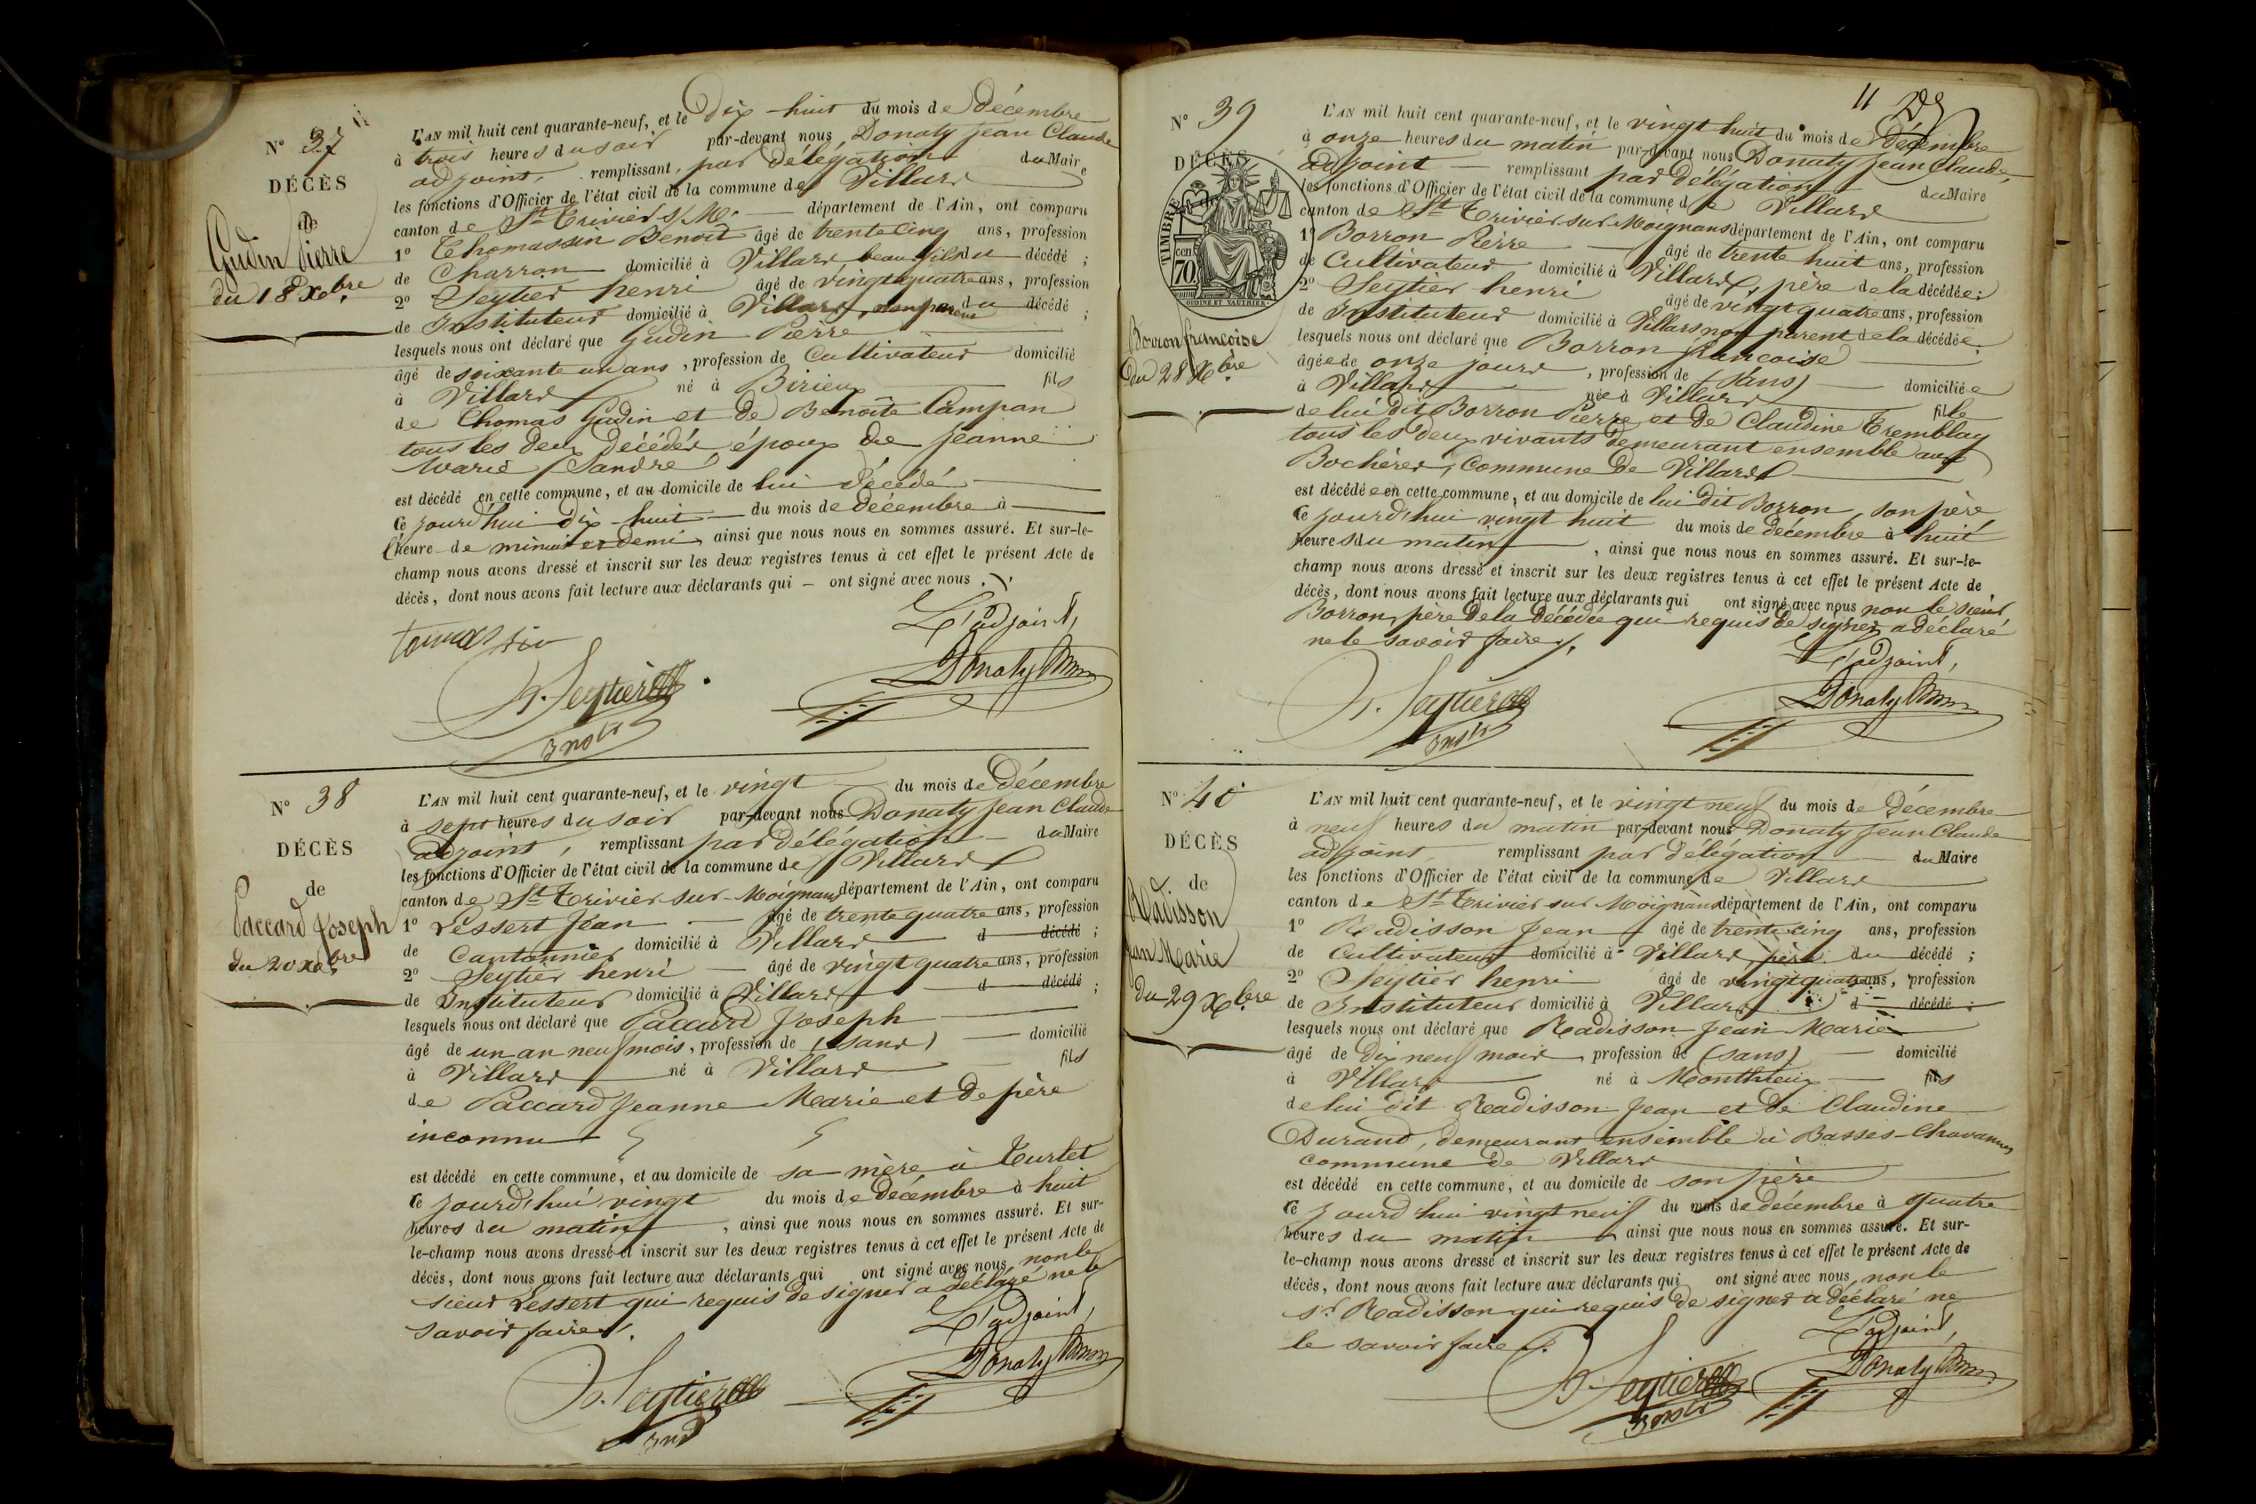 N° 37
DÉCÈS
de
Gudin Pierre
du 18 Xbre
L'AN mil huit cent quarante-neuf, et le Dix-huit du mois de Décembre
à trois heures du soir par-devant nous Donaty Jean Claude
adjoint, remplissant par délégation du Maire
les fonctions d'Officier de l'état civil de la commune de Villars
canton de St Trivier s/ M. département de l'Ain, ont comparu
1° Thomassin Benoît âgé de trente cinq ans, profession
de Charron domicilié à Villars beau fils du décédé ;
2° Seytier henri âgé de vingt quatre ans, profession
de Instituteur domicilié à Villars, non parent du décédé ;
lesquels nous ont déclaré que Gudin Pierre
âgé de soixante un ans, profession de Cultivateur domicilié
à Villars né à Birieux fils
de Thomas Gudin et de Benoîte Campan
tous les deux décédés, époux de Jeanne
Marie Sandre
est décédé en cette commune, et au domicile de lui décédé
ce jourd'hui dix-huit du mois de décembre à
l'heure de minuit et demi, ainsi que nous nous en sommes assuré. Et sur-le-
champ nous avons dressé et inscrit sur les deux registres tenus à cet effet le présent Acte de
décès, dont nous avons fait lecture aux déclarants qui — ont signé avec nous.
L'adjoint,
tomassin
H. Seytier
Donaty
Instr
N° 38
DÉCÈS
de
Paccard Joseph
du 20 Xbre
L'AN mil huit cent quarante-neuf, et le vingt du mois de Décembre
à sept heures du soir par-devant nous Donaty Jean Claude
adjoint, remplissant par délégation du Maire
les fonctions d'Officier de l'état civil de la commune de Villars
canton de St Trivier-sur-Moignans département de l'Ain, ont comparu
1° Lessert Jean âgé de trente quatre ans, profession
de Cantonnier domicilié à Villars d décédé ;
2° Seytier henri âgé de vingt quatre ans, profession
de Instituteur domicilié à Villars d décédé ;
lesquels nous ont déclaré que Paccard Joseph
âgé de un an neuf mois, profession de (sans) domicilié
à Villars né à Villars fils
de Paccard Jeanne Marie et de père
inconnu
est décédé en cette commune, et au domicile de sa mère à Turlet
ce jourd'hui vingt du mois de décembre à huit
heures du matin, ainsi que nous nous en sommes assuré. Et sur-
le-champ nous avons dressé et inscrit sur les deux registres tenus à cet effet le présent Acte de
décès, dont nous avons fait lecture aux déclarants qui ont signé avec nous non le
sieur Lessert qui requis de signer a déclaré ne le
savoir faire.
L'adjoint,
H. Seytier
Donaty
Inst
11
N° 39
DÉCÈS
de
TIMBRE
70
OUDINE ET VAUTHIER
Borron françoise
du 28 Xbre
L'AN mil huit cent quarante-neuf, et le vingt huit du mois de Décembre
à onze heures du matin par-devant nous Donaty Jean Claude,
adjoint remplissant par délégation du Maire
les fonctions d'Officier de l'état civil de la commune de Villars
canton de St Trivier sur Moignans département de l'Ain, ont comparu
1° Borron Pierre âgé de trente huit ans, profession
de Cultivateur domicilié à Villars, père de la décédée ;
2° Seytier henri âgé de vingt quatre ans, profession
de Instituteur domicilié à Villars non parent de la décédée ;
lesquels nous ont déclaré que Borron françoise
âgée de onze jours, profession de (Sans) domiciliée
à Villars née à Villars fille
de lui dit Borron Pierre et de Claudine Tremblay
tous les deux vivants demeurant ensemble aux
Bochères, Commune de Villars
est décédée en cette commune, et au domicile de lui dit Borron, son père
ce jourd'hui vingt huit du mois de décembre à huit
heures du matin, ainsi que nous nous en sommes assuré. Et sur-le-
champ nous avons dressé et inscrit sur les deux registres tenus à cet effet le présent Acte de
décès, dont nous avons fait lecture aux déclarants qui ont signé avec nous non le sieur
Borron, père de la décédée qui requis de signer a déclaré
ne le savoir faire.
L'adjoint,
H. Seytier
Donaty
Instr
N° 40
DÉCÈS
de
Radisson
Jean Marie
du 29 Xbre
L'AN mil huit cent quarante-neuf, et le vingt neuf du mois de Décembre
à neuf heures du matin par-devant nous Donaty Jean Claude
adjoint remplissant par délégation du Maire
les fonctions d'Officier de l'état civil de la commune de Villars
canton de St Trivier sur Moignans département de l'Ain, ont comparu
1° Radisson Jean âgé de trente cinq ans, profession
de Cultivateur domicilié à Villars père du décédé ;
2° Seytier henri âgé de vingt quatre ans, profession
de Instituteur domicilié à Villars d décédé ;
lesquels nous ont déclaré que Radisson Jean Marie
âgé de dix neuf mois, profession de (sans) domicilié
à Villars né à Monthieux fils
de lui dit Radisson Jean et de Claudine
Durand, demeurant ensemble à Basses-Chavannes
commune de Villars
est décédé en cette commune, et au domicile de son père
ce jourd'hui vingt neuf du mois de décembre à quatre
heures du matin ainsi que nous nous en sommes assuré. Et sur-
le-champ nous avons dressé et inscrit sur les deux registres tenus à cet effet le présent Acte de
décès, dont nous avons fait lecture aux déclarants qui ont signé avec nous non le
sr Radisson qui requis de signer a déclaré ne
le savoir faire.
L'adjoint,
H. Seytier
Donaty
Instr